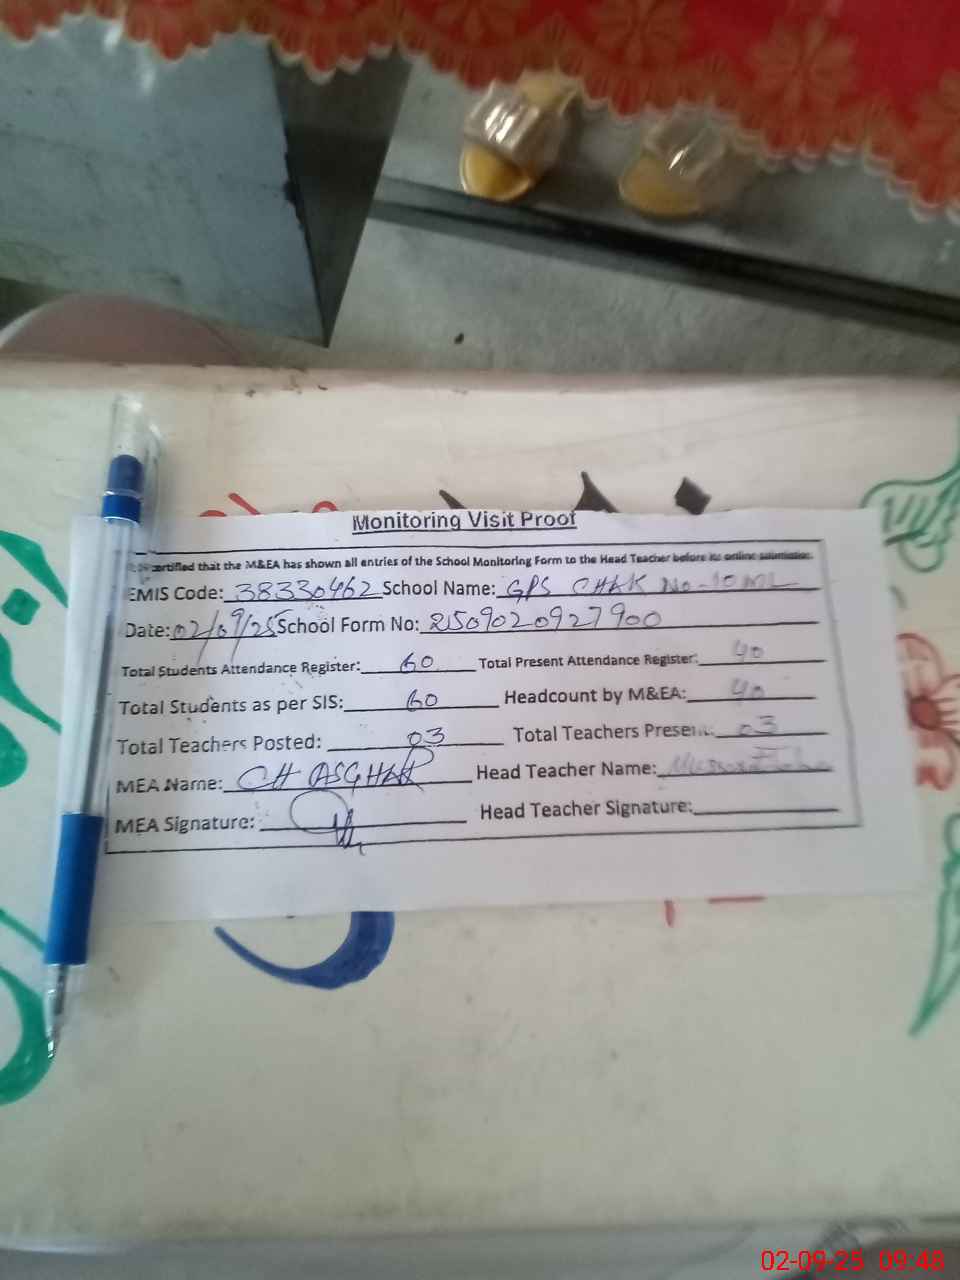 Monitoring Visit Proof
certified that the M&EA has shown all entries of the School Monitoring Form to the Head Teacher before its online submission.
EMIS Code: 38330462 School Name: GPS CHAK No-10 ML
Date: 02/09/25 School Form No: 2509020927900
Total Students Attendance Register: 60 Total Present Attendance Register: 40
Total Students as per SIS: 60 Headcount by M&EA: 40
Total Teachers Posted: 03 Total Teachers Present: 03
MEA Name: CH ASGHAR Head Teacher Name:
MEA Signature: Head Teacher Signature:
02-09-25 09:48